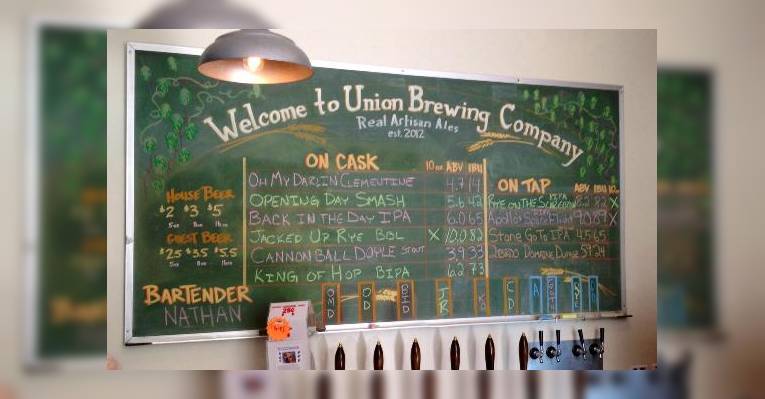 Welcome to Union Brewing Company
Real Artisan Ales
est. 2012
ON CASK
10oz ABV IBU
OH MY DARLIN CLEMENTINE 4.7 14
OPENING DAY SMASH 5.6 42
BACK IN THE DAY IPA 6.0 65
JACKED UP RYE BBL X 10.0 83
CANNONBALL DOYLE STOUT 3.9 33
KING OF HOP BIPA 73
ON TAP
ABV IBU 10oz
RYE ON THE X
90 89 X
Stone Go To IPA 4.5 65
HOUSE BEER
$2 $3 $5
GUEST BEER
$2.5 $3.5 $5.5
BARTENDER
NATHAN
OMD
OD
BID
JR
K
CD
A
RYE